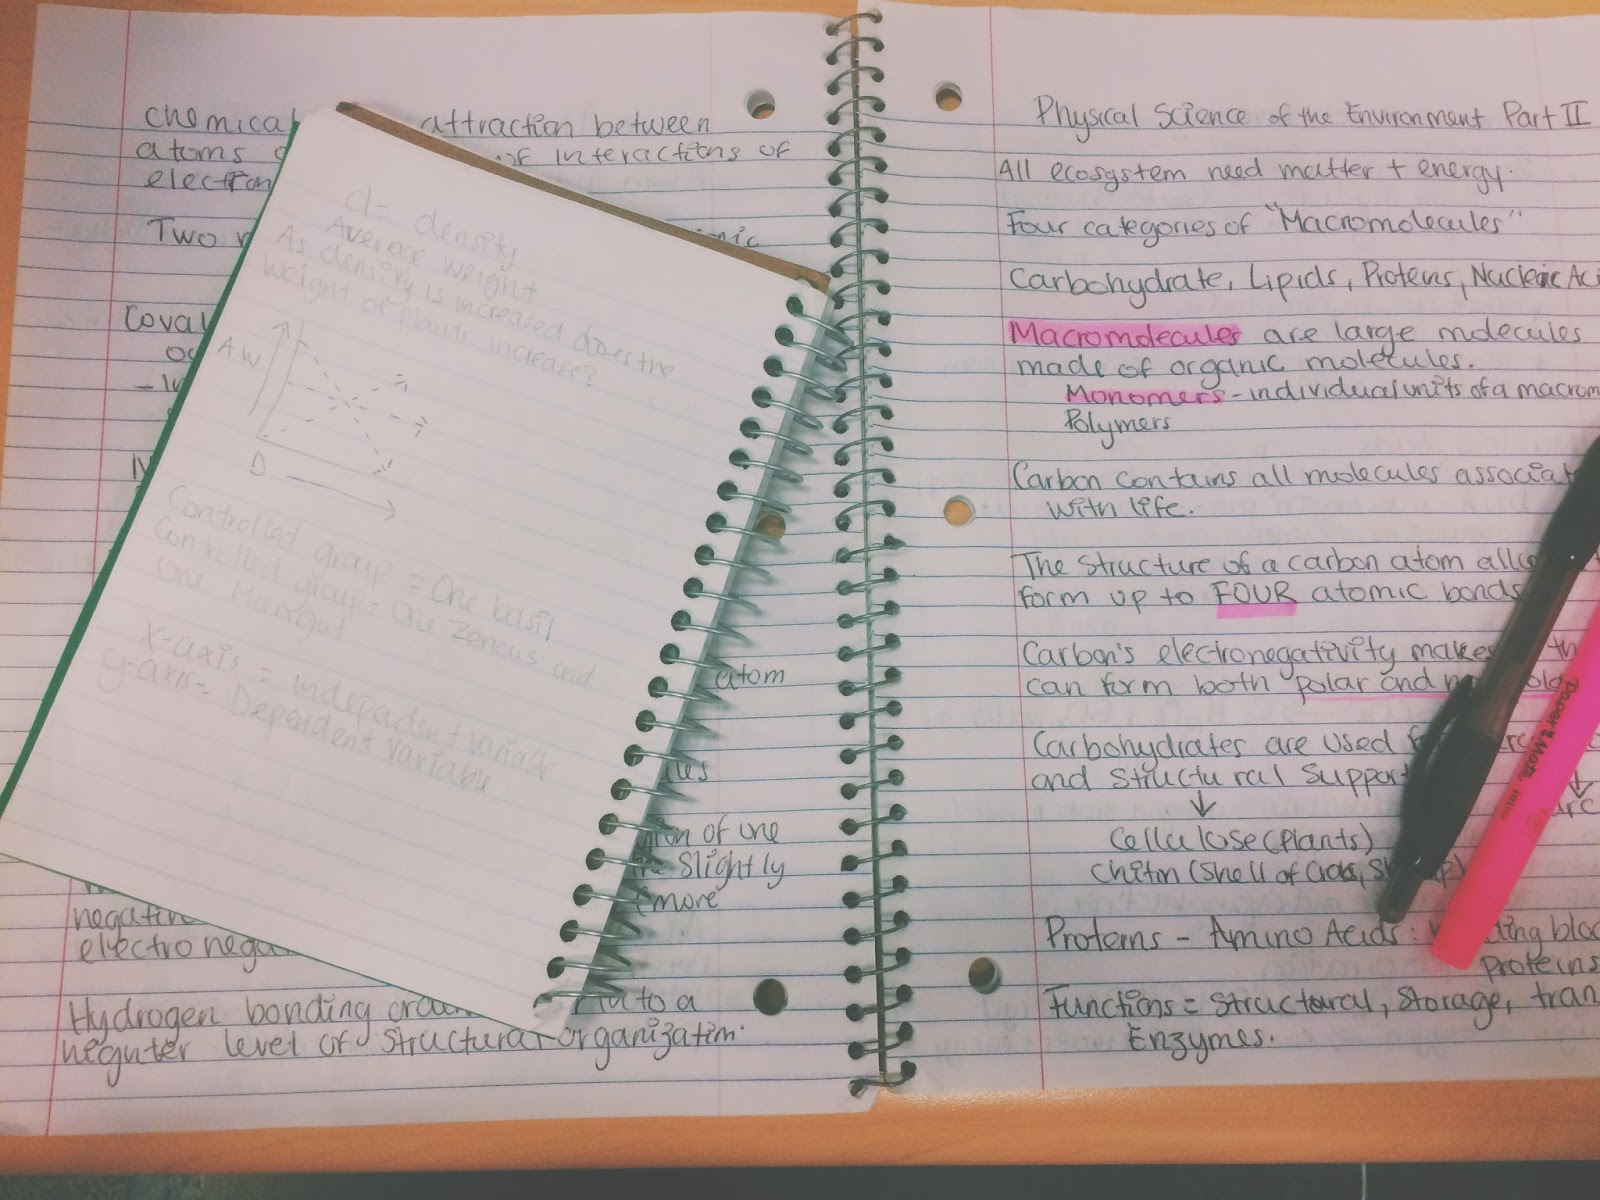 chemical attraction between
atoms of interactions of
electron
Two
Coval
atom
of one
slightly
more
electronega
Hydrogen bonding to a
level of structural organization.
d = density
Average weight
As density is increased does the
weight of plants increase?
AW
D
Controlled group = One basil
Controlled group = One Zenous and
One Marigot
X-axis = independent variable
y-axis = Dependent variable
Physical Science of the Environment Part II
All ecosystem need matter + energy.
Four categories of "Macromolecules"
Carbohydrate, Lipids, Proteins, Nucleic Ac
Macromolecules are large molecules
made of organic molecules.
Monomers - individual units of a macrom
Polymers
Carbon contains all molecules associat
with life.
The structure of a carbon atom all
form up to FOUR atomic bonds
Carbon's electronegativity makes th
can form both polar and
Carbohydrates are used
and structural support
↓ ↓
Cellulose (Plants)
chitin (Shell of
Proteins - Amino Acids:
proteins
Functions = structural, storage, tran
Enzymes.
PaperMate